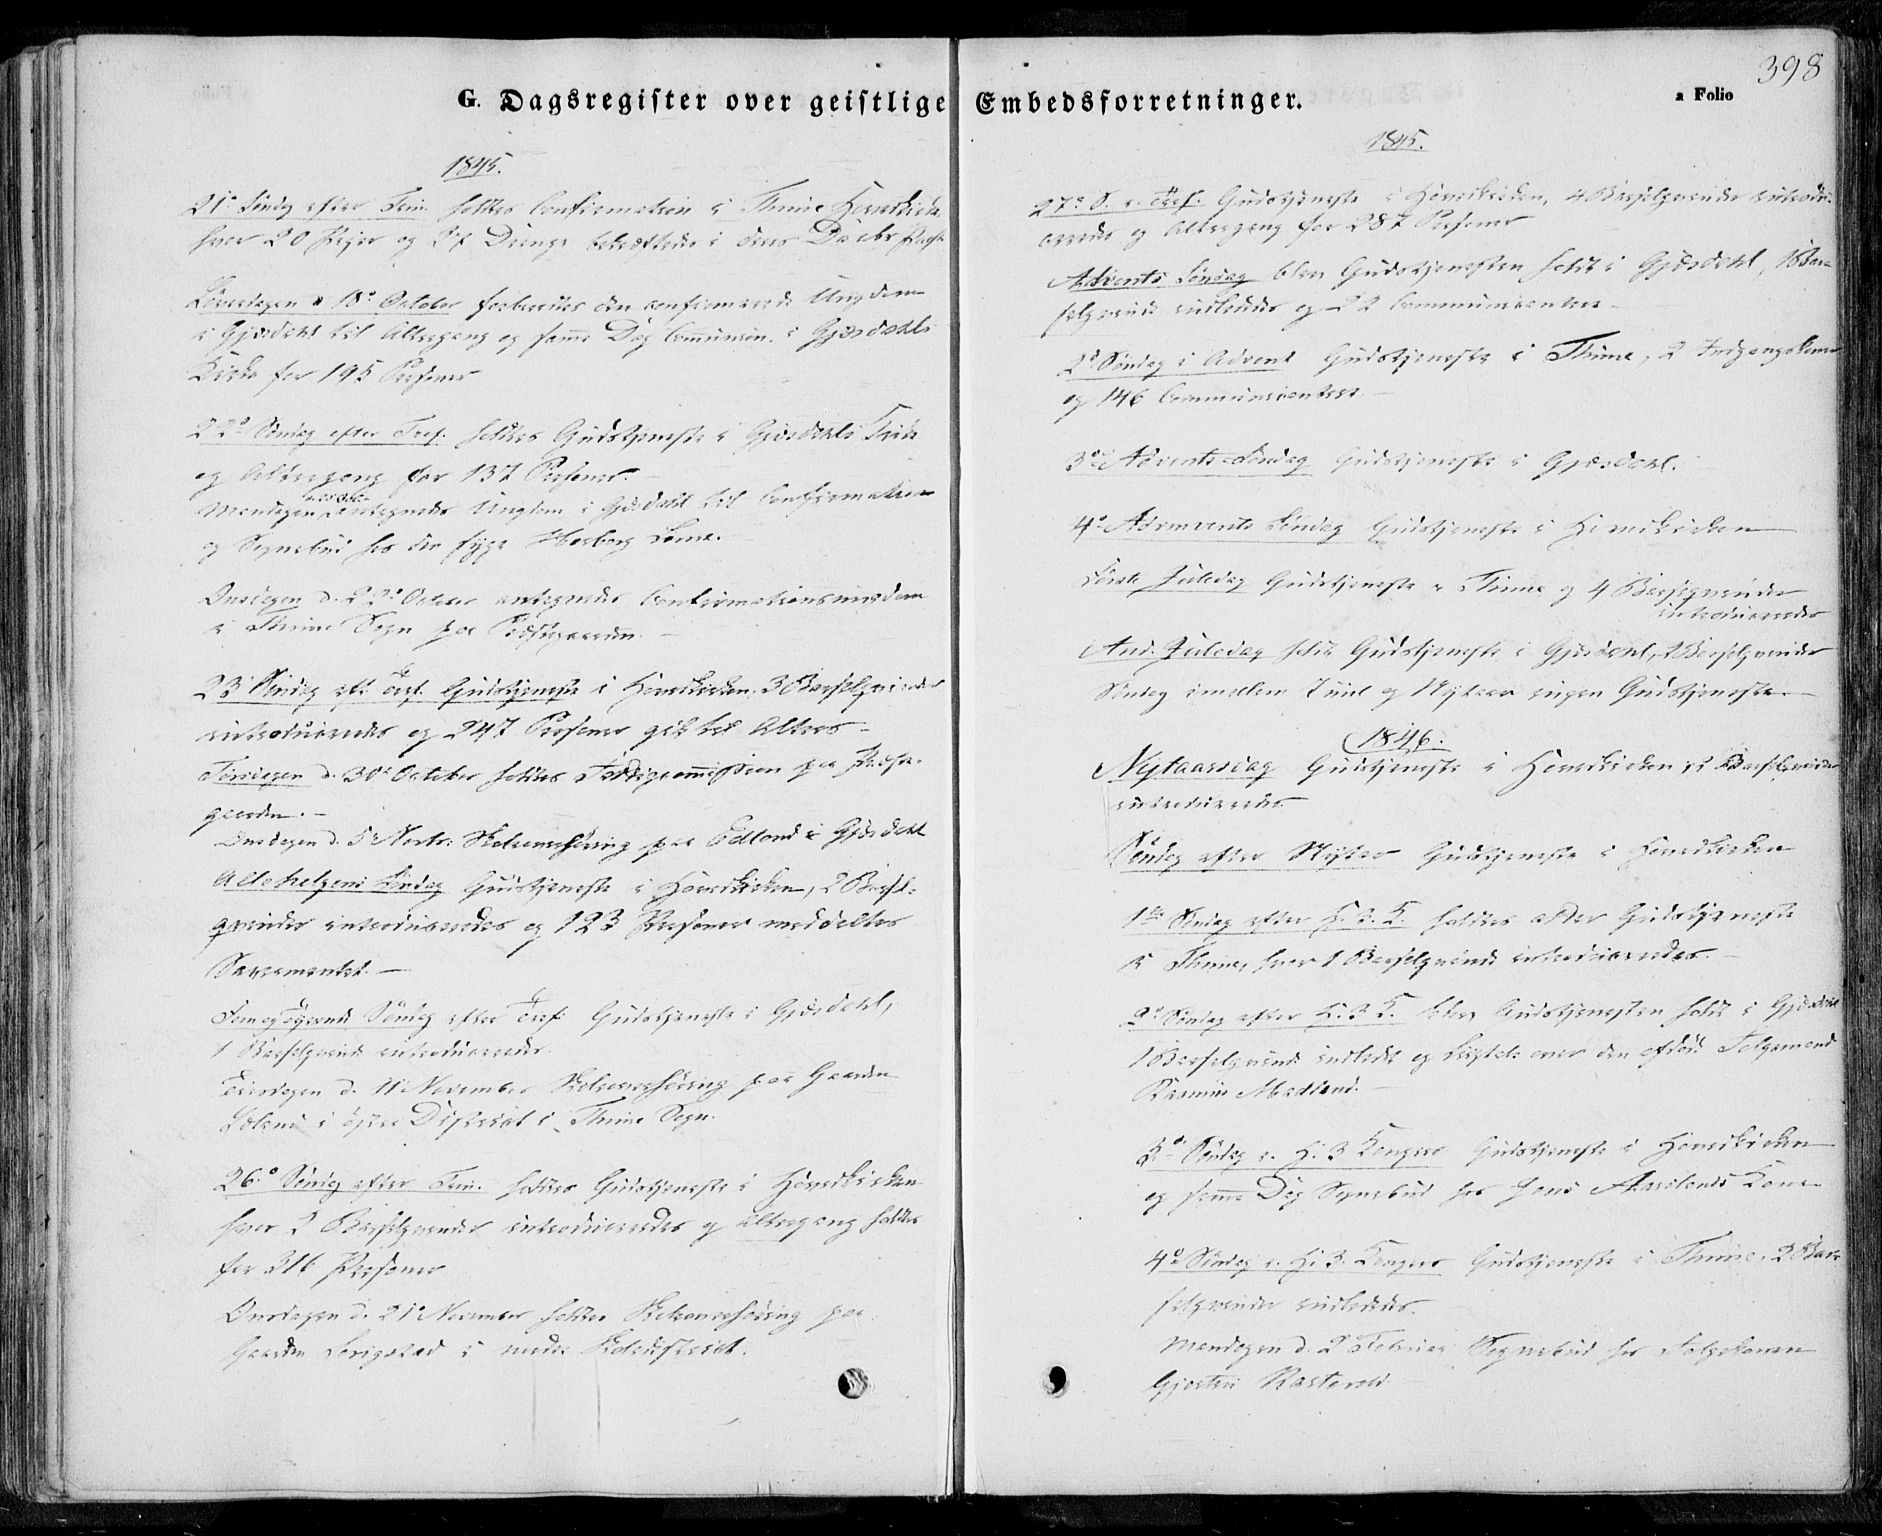 398
G. Dagsregister over geistlige Embedsforretninger.
a Folio
1845.
21de Søndag efter Trin. holdtes Confirmation i Thime Hovedkirke
hvor 20 Piger og 27 Drenge bekræftedes i deres Daabs Pagt
Løverdagen 18de October forberedtes den confirmerede Ungdom
i Gjesdahl til Altergang og samme Dag Communion i Gjesdahls
Kirke for 195 Personer
22de Søndag efter Tref. holdtes Gudstjeneste i Gjesdahls Kirke
og Altergang for 137 Personer.
Mandagen antegnedes Ungdom i Gjesdahl til Confirmation
og Sognebud hos den syge
Onsdagen d. 22de October antegnedes Confirmationsungdom
i Thime Sogn paa
23 Søndag eft. Tref. Gudstjeneste i Hovedkirken. 3 Barselqvinder
introduceredes og 247 Personer gik til Alters
Tirsdagen d. October holdtes Fattigcommission paa Præste-
gaarden.
Onsdagen d. 5te Novbr. Skoleoverhøring paa Edland i Gjesdahl
Allehelgens Søndag Gudstjeneste i Hovedkirken, 2 Barsel-
qvinder introduceredes og 123 Personer meddeltes
Sacramentet.
Fem og tyvende Søndag efter Tref. Gudstjeneste i Gjesdahl,
1 Barselqvinde introduceredes.
Tirsdagen d. 11te November Skoleoverhøring paa Gaarden
i østre District i Thime Sogn.
26de Søndag efter Trin. holdtes Gudstjeneste i Hovedkirken
hvor 2 Barselqvinder introduceredes og Altergang holdtes
for 316 Personer
Onsdagen d. 21de November holdtes Skoleoverhøring paa
Gaarden i nedre Skoledistrict.
1845.
27de S. e. Tref. Gudstjeneste i Hovedkirken, 4 Barselqvinder introdu-
ceredes og Altergang for 287 Personer
Advents Søndag blev Gudstjenesten holdt i Gjesdahl, 1 Bar-
selqvinde indlededes og 22 Communicanter
2de Søndag i Advent Gudstjeneste i Thime, 2 Indgangskoner
og 146 Communicanter.
3de Advents-Søndag Gudstjeneste i Gjesdahl.
4de Advents Søndag Gudstjeneste i Hovedkirken
Første Juledag Gudstjeneste i Thime og 4 Barselqvinder
introduceredes
And. Juledag holdt Gudstjeneste i Gjesdahl, 2 Barselqvinder
Søndag imellem Juul og Nytaar ingen Gudstjeneste.
1846.
Nytaarsdag Gudstjeneste i Hovedkirken, Barselqvinder
introduceredes
Søndag efter Nytaar Gudstjeneste i Hovedkirken
1ste Søndag efter H. 3 K. holdtes Gudstjeneste
i Thime, hvor 1 Barselqvinde introduceredes.
2den Søndag efter H. 3 K. blev Gudstjenesten holdt i Gjesdahl
1 Barselqvinde indledt og Liigtale over den afdøde Folgemand
Rasmus Madland.
3die Søndag e. H. 3 Konger Gudstjeneste i Hovedkirken
og samme Dag Sognebud hos Kone
4de Søndag e. H. 3 Konger Gudstjeneste i Thime, 2 Bar-
selqvinder indlededes.
Mandagen d. 2de Februar Sognebud hos Folgekonen